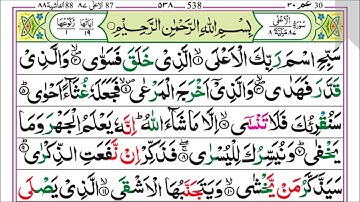 30 عم ٣٠ 538 ٥٣٨ 87 الاعلى ٨٧ 88 الغاشية ٨٨
سورة الاعلى بِسْمِ اللّٰهِ الرَّحْمٰنِ الرَّحِيْمِ اٰیاتها ١٩ رکوعها ١
سَبِّحِ اسْمَ رَبِّكَ الْاَعْلَى ۝۱ الَّذِيْ خَلَقَ فَسَوّٰى ۝۲ وَالَّذِيْ
قَدَّرَ فَهَدٰى ۝۳ وَالَّذِيْٓ اَخْرَجَ الْمَرْعٰى ۝۴ فَجَعَلَهٗ غُثَآءً اَحْوٰى ۝۵
سَنُقْرِئُكَ فَلَا تَنْسٰٓى ۝۶ اِلَّا مَا شَآءَ اللّٰهُ اِنَّهٗ يَعْلَمُ الْجَهْرَ وَمَا
يَخْفٰى ۝۷ وَنُيَسِّرُكَ لِلْيُسْرٰى ۝۸ فَذَكِّرْ اِنْ نَّفَعَتِ الذِّكْرٰى ۝۹
سَيَذَّكَّرُ مَنْ يَّخْشٰى ۝۱۰ وَيَتَجَنَّبُهَا الْاَشْقَى ۝۱۱ الَّذِيْ يَصْلَى